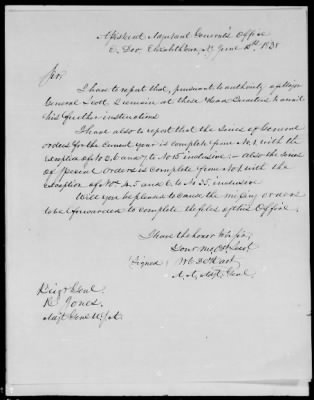 Assistant Adjutant General's Office
E. Dev. Elizabethtown, N.J. June 12th 1838
Sir
I have to report that, pursuant to authority of Major
General Scott I remain at these Head Quarters to await
his further instructions
I have also to report that the Series of General
orders for the current year is complete from No 1 with the
exception of No 2, 6 and 7, to No 15 inclusive:- Also the series
of Special Orders is complete from No 1 with the
exception of Nos 4, 5 and 6 to No 35, inclusive
Will you be pleased to cause the missing orders
to be forwarded to complete the files of this Office.
I have the honor to be Sir,
Your mo. Ob. Servt
(Signed)
A. A. Adjt Genl
Brig Genl
R. Jones,
Adjt Genl U.S.A.